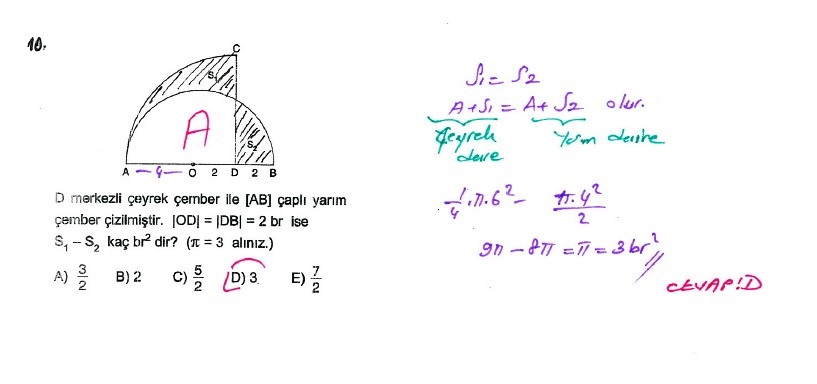 10.
C
S₁
A
S₂
A 4 O 2 D 2 B
D merkezli çeyrek çember ile [AB] çaplı yarım
çember çizilmiştir. |OD| = |DB| = 2 br ise
S₁ – S₂ kaç br² dir? (π = 3 alınız.)
A) 3/2 B) 2 C) 5/2 D) 3 E) 7/2
S₁ = S₂
A + S₁ = A + S₂ olur.
Çeyrek Yarım daire
daire
1/4 . π . 6² – π . 4²/2
9π – 8π = π = 3 br²
CEVAP: D